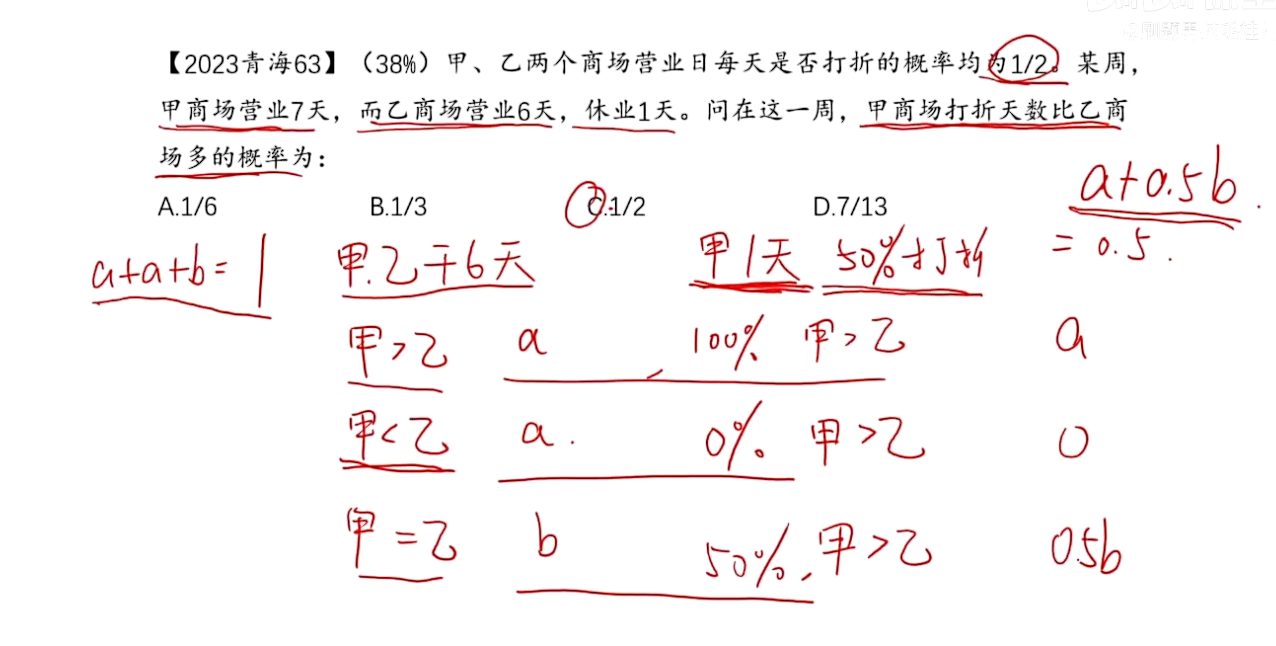 【2023青海63】（38%）甲、乙两个商场营业日每天是否打折的概率均为1/2。某周，
甲商场营业7天，而乙商场营业6天，休业1天。问在这一周，甲商场打折天数比乙商
场多的概率为：
A.1/6 B.1/3 C.1/2 D.7/13
a+0.5b
= 0.5.
a+a+b=1 甲.乙干6天 甲1天 50%打折
甲>乙 a 100% 甲>乙 a
甲<乙 a. 0%. 甲>乙 0
甲=乙 b 50%, 甲>乙 0.5b